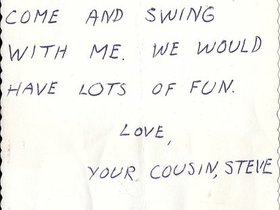 COME AND SWING
WITH ME. WE WOULD
HAVE LOTS OF FUN.
LOVE,
YOUR COUSIN, STEVE